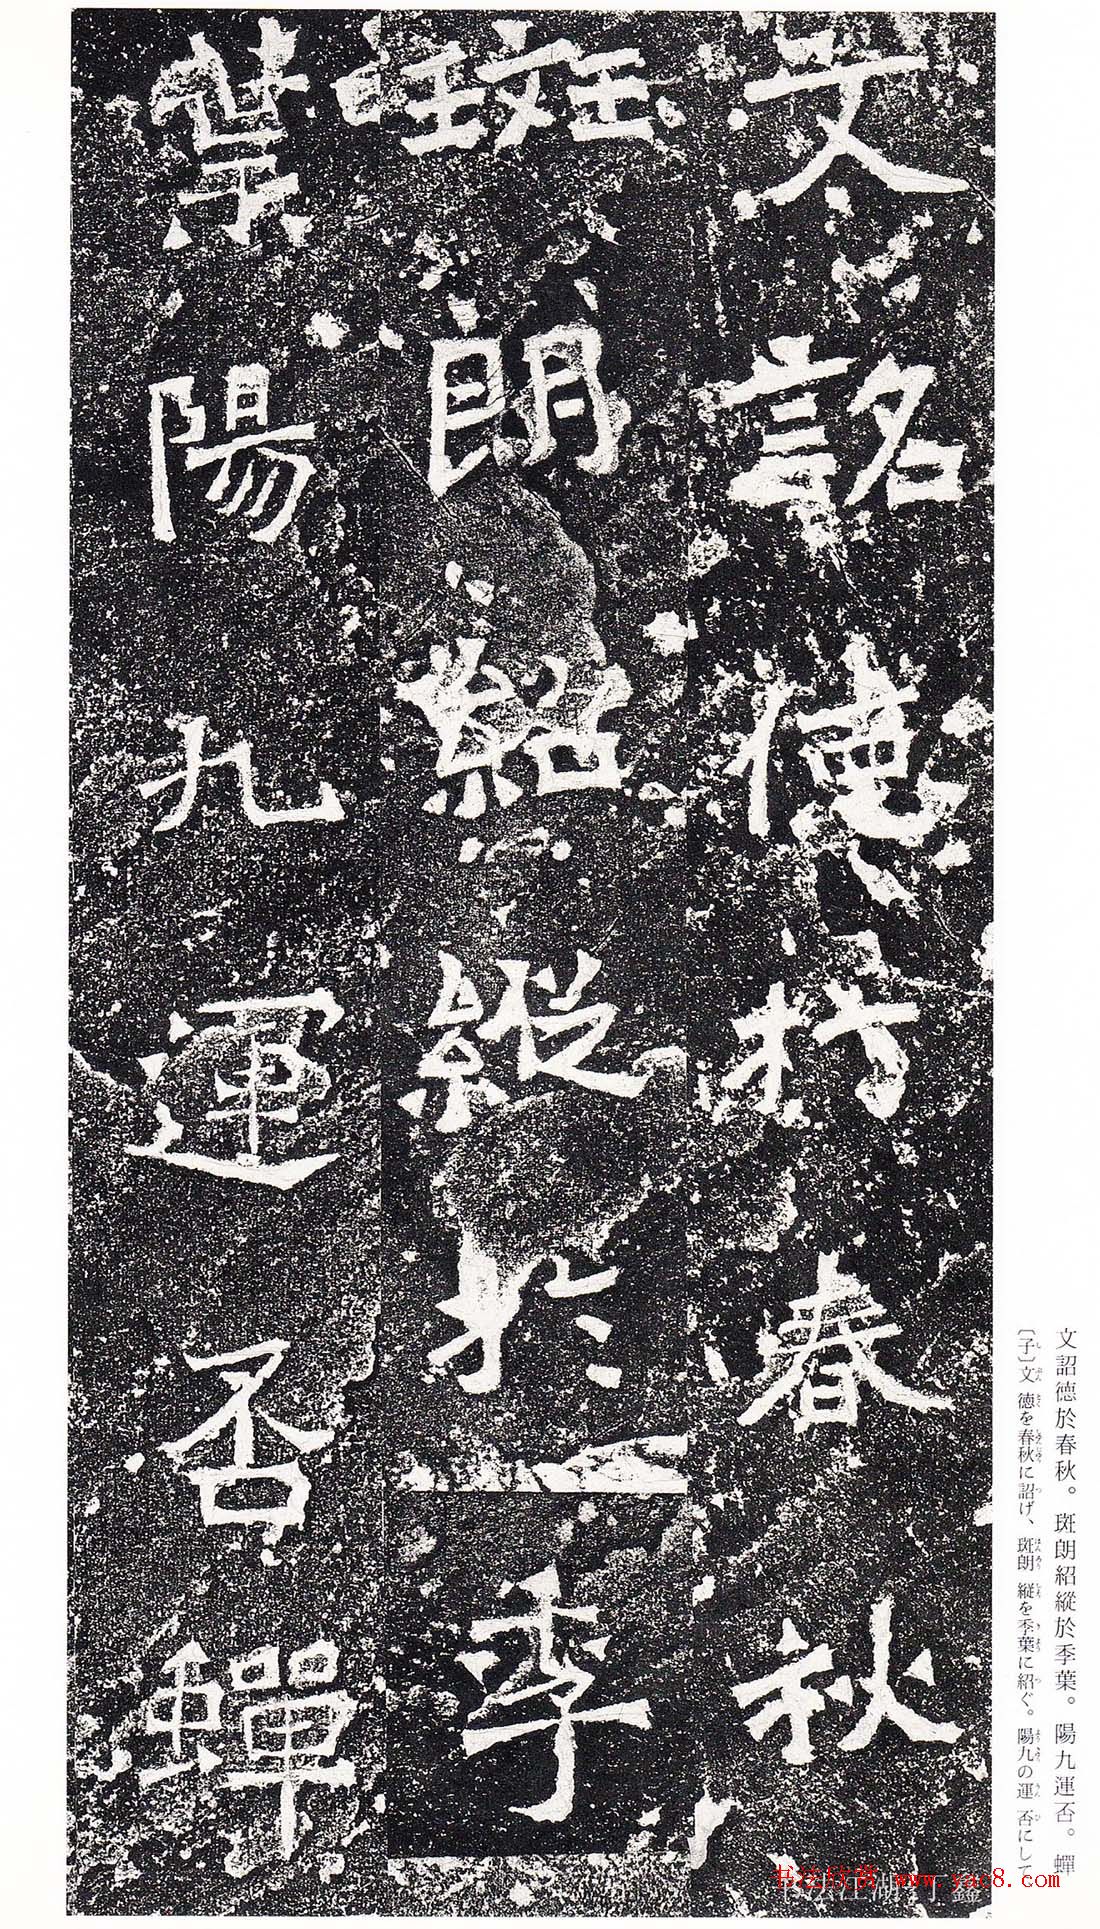 文詺德於春秋
斑朗紹縱於季
葉陽九運否蟬
文詔德於春秋。斑朗紹縱於季葉。陽九運否。蟬
〔子〕文 德を春秋に詔げ、斑朗 縱を季葉に紹ぐ。陽九の運 否にして
书法欣赏 www.yac8.com